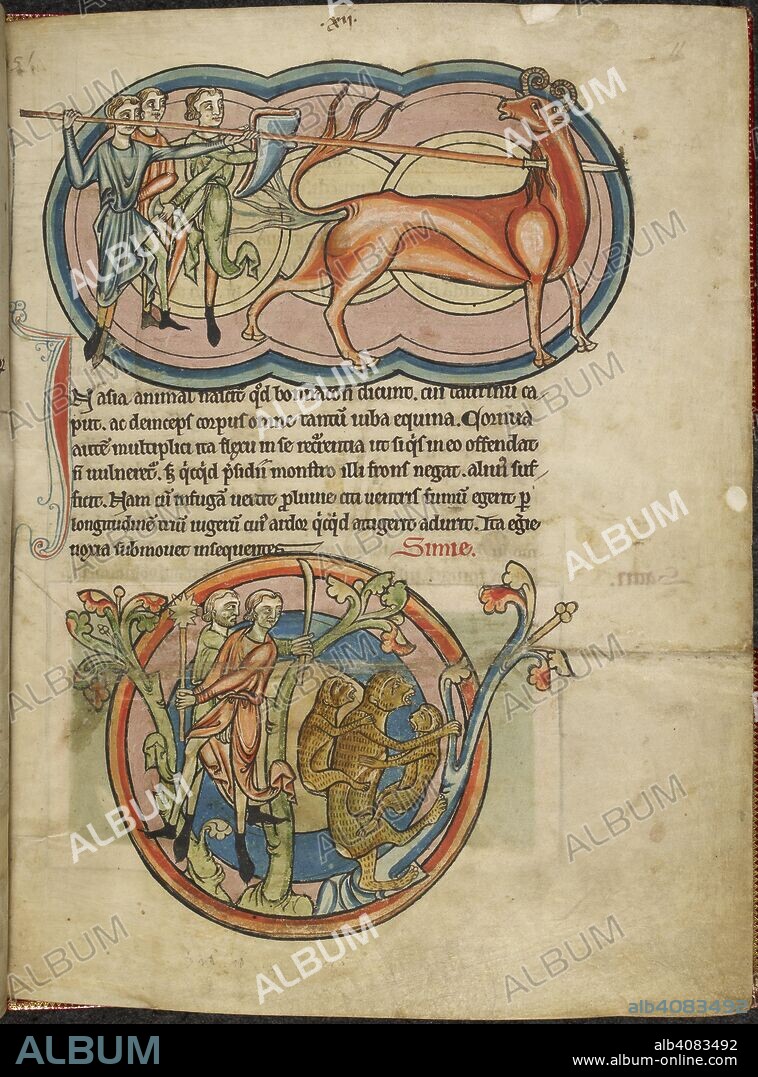 ·xii·
11
IN asia animal nascit̉ qd̉ bonnacon̄ dicunt. cui taurinū ca-
put. ac deinceps corpus om̄e tantū iuba equina. Cornua
autē multiplici ita flexu in se recurrentia ut si q̉s in eo offendat
n̄ vulneret̉. sꝫ q̉cq̉d p̄sidii monstro illi frons negat. aluus suf-
ficit. Nam cū in fugā vertit̉ proluuie citi ventris fumū egerit ꝑ
longitudinē triū iugerū cuỉ ardor q̉cq̉d attigerit adurit. Ita egerie
noxia submovet insequentes
Simie.
ALBUM
alb4083492
ALBUM
alb4083492
www.album-online.com